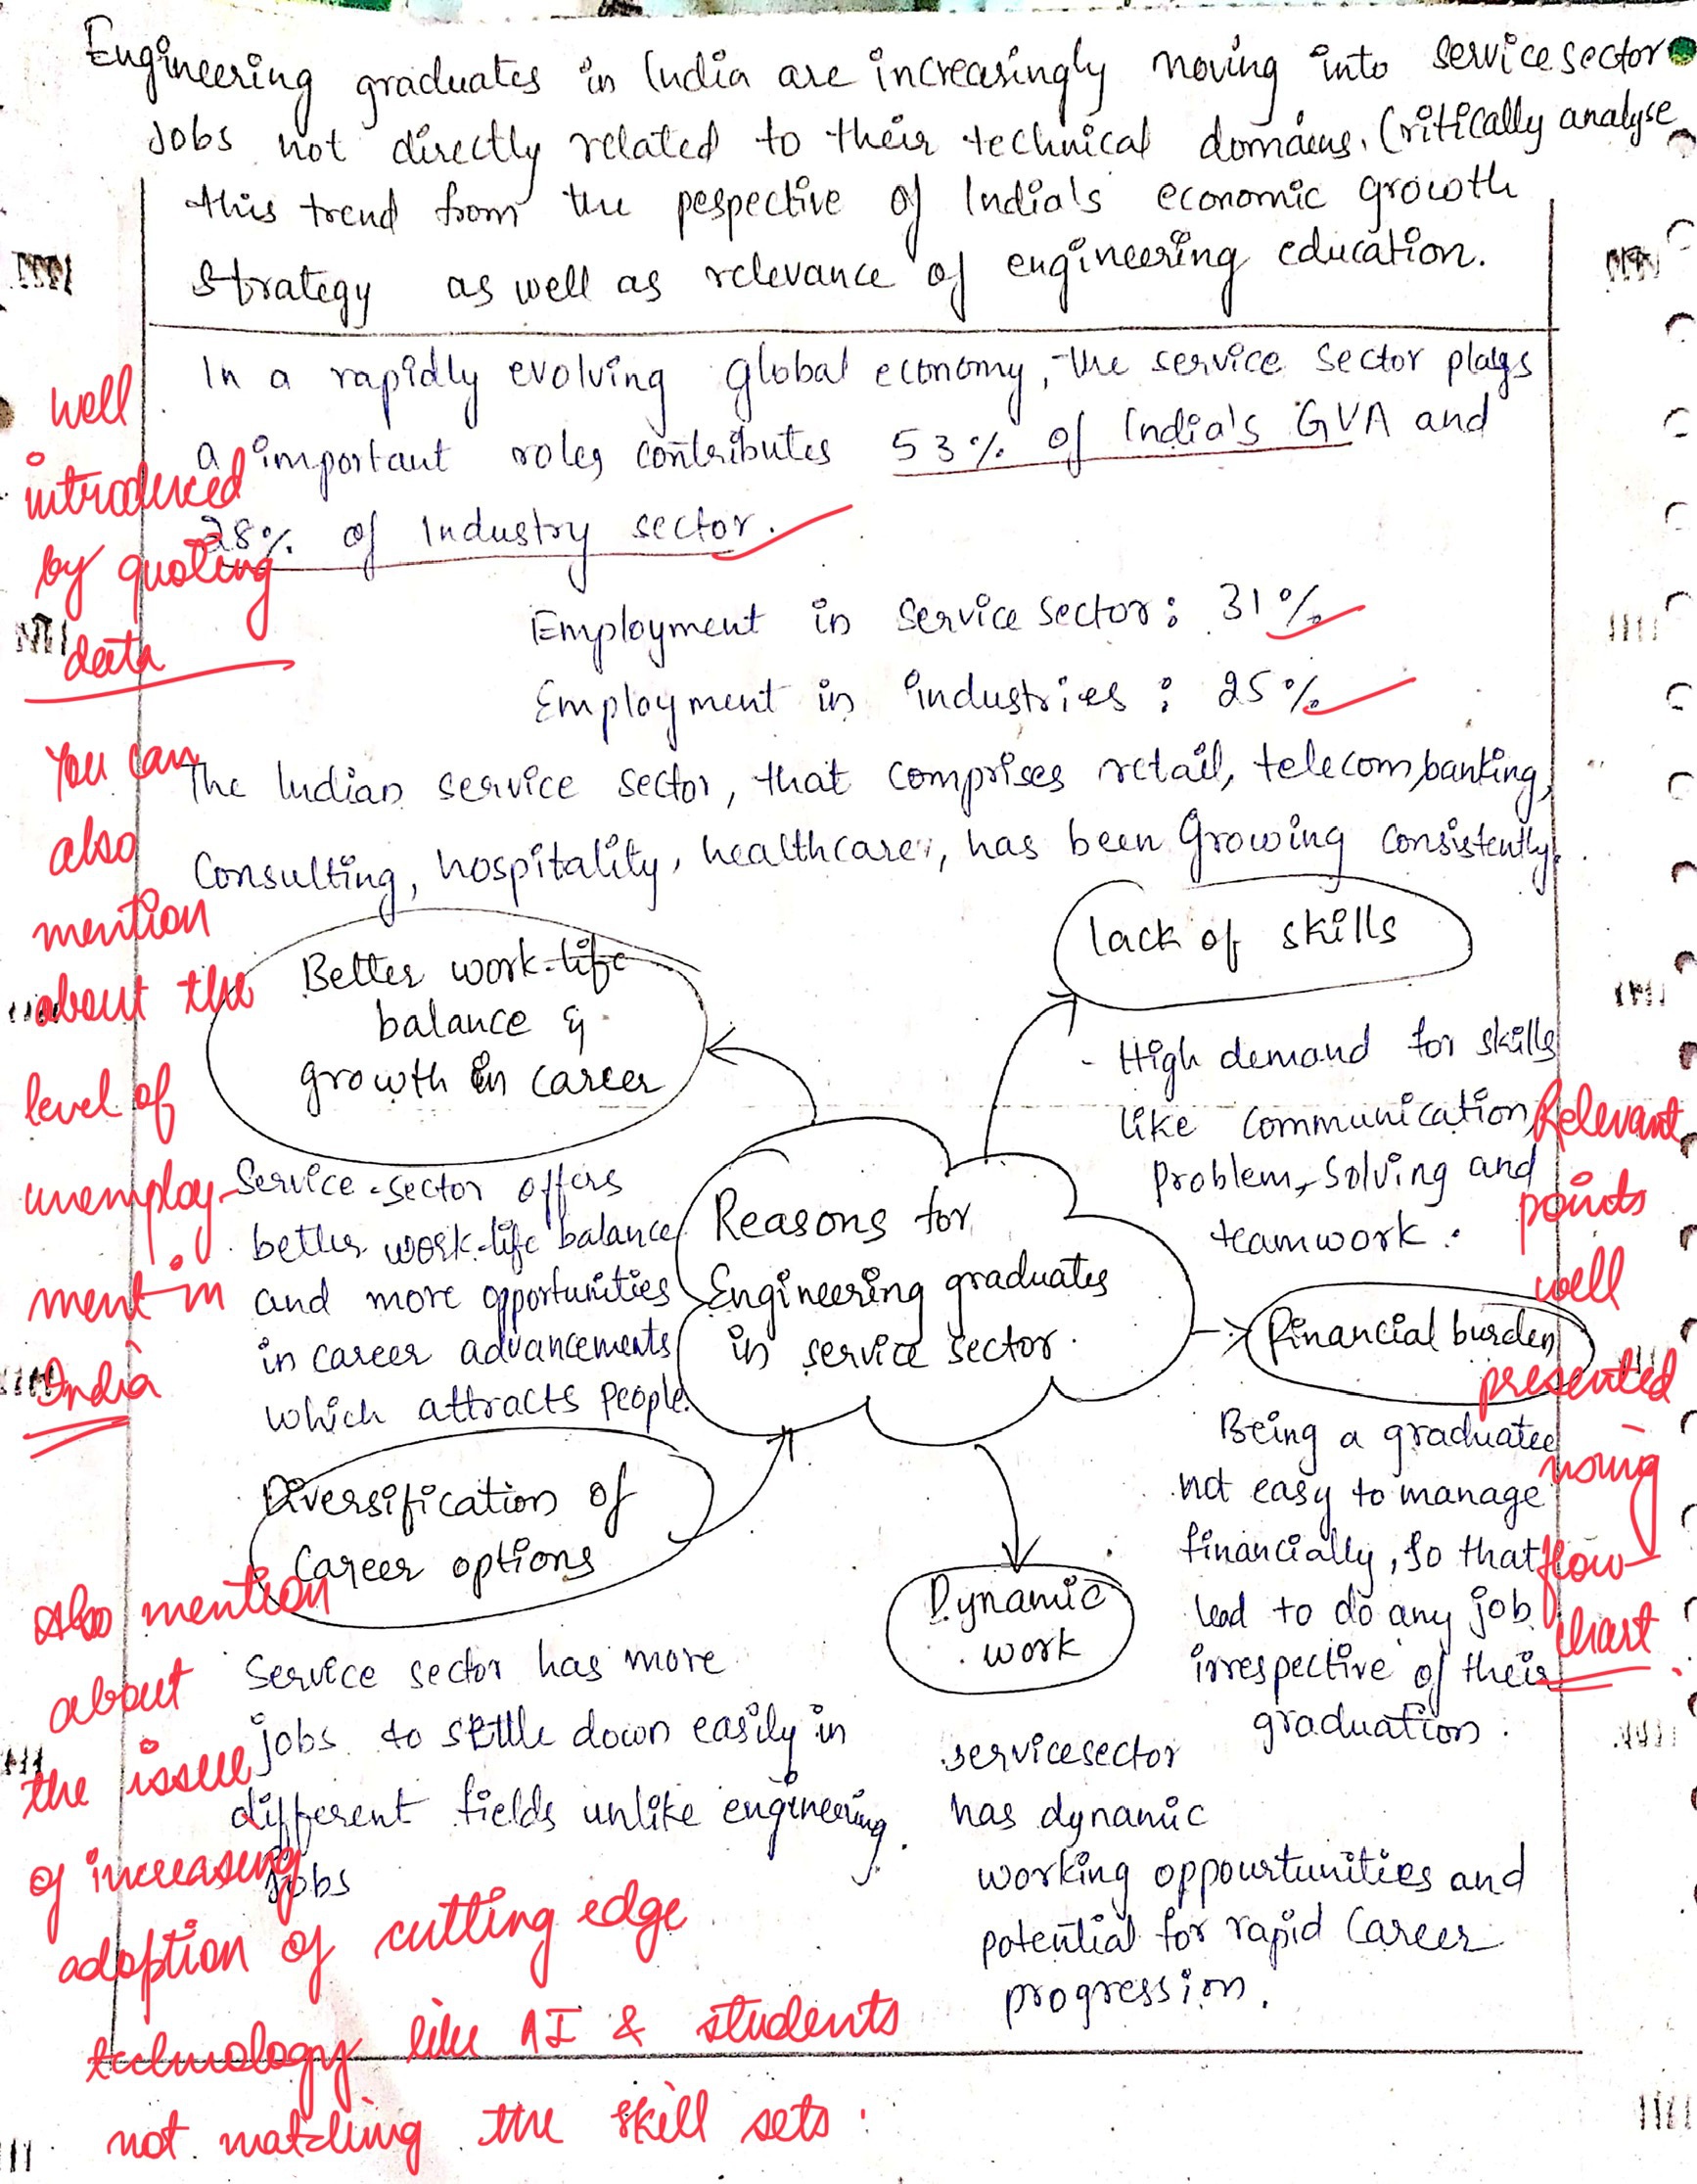 Engineering graduates in India are increasingly moving into service sector
Jobs not directly related to their technical domains. Critically analyse
this trend from the pespective of India's economic growth
strategy as well as relevance of engineering education.
In a rapidly evolving global economy, the service sector plays
a important roles contributes 53% of India's GVA and
28% of Industry sector.
Employment in service sector: 31%
Employment in industries: 25%
The Indian service sector, that comprises retail, telecom, banking,
Consulting, hospitality, healthcare, has been Growing consistently.
well
introduced
by quoting
data
You can
also
mention
about the
level of
unemploy-
ment in
India
Better work-life
balance &
growth in career
Service-sector offers
better work-life balance
and more opportunities
in career advancements
which attracts people.
lack of skills
- High demand for skills
like communication,
problem-solving and
teamwork.
Reasons for
Engineering graduates
in service sector.
Financial burden
Being a graduate
not easy to manage
financially, so that
lead to do any job
irrespective of their
graduation.
Relevant
points
well
presented
using
flow-
chart.
Diversification of
Career options
Service sector has more
jobs to settle down easily in
different fields unlike engineering
jobs
Dynamic
work
servicesector
has dynamic
working oppourtunities and
potential for rapid Career
progression.
Also mention
about
the issue
of increasing
adoption of cutting edge
technology like AI & students
not matching the skill sets.